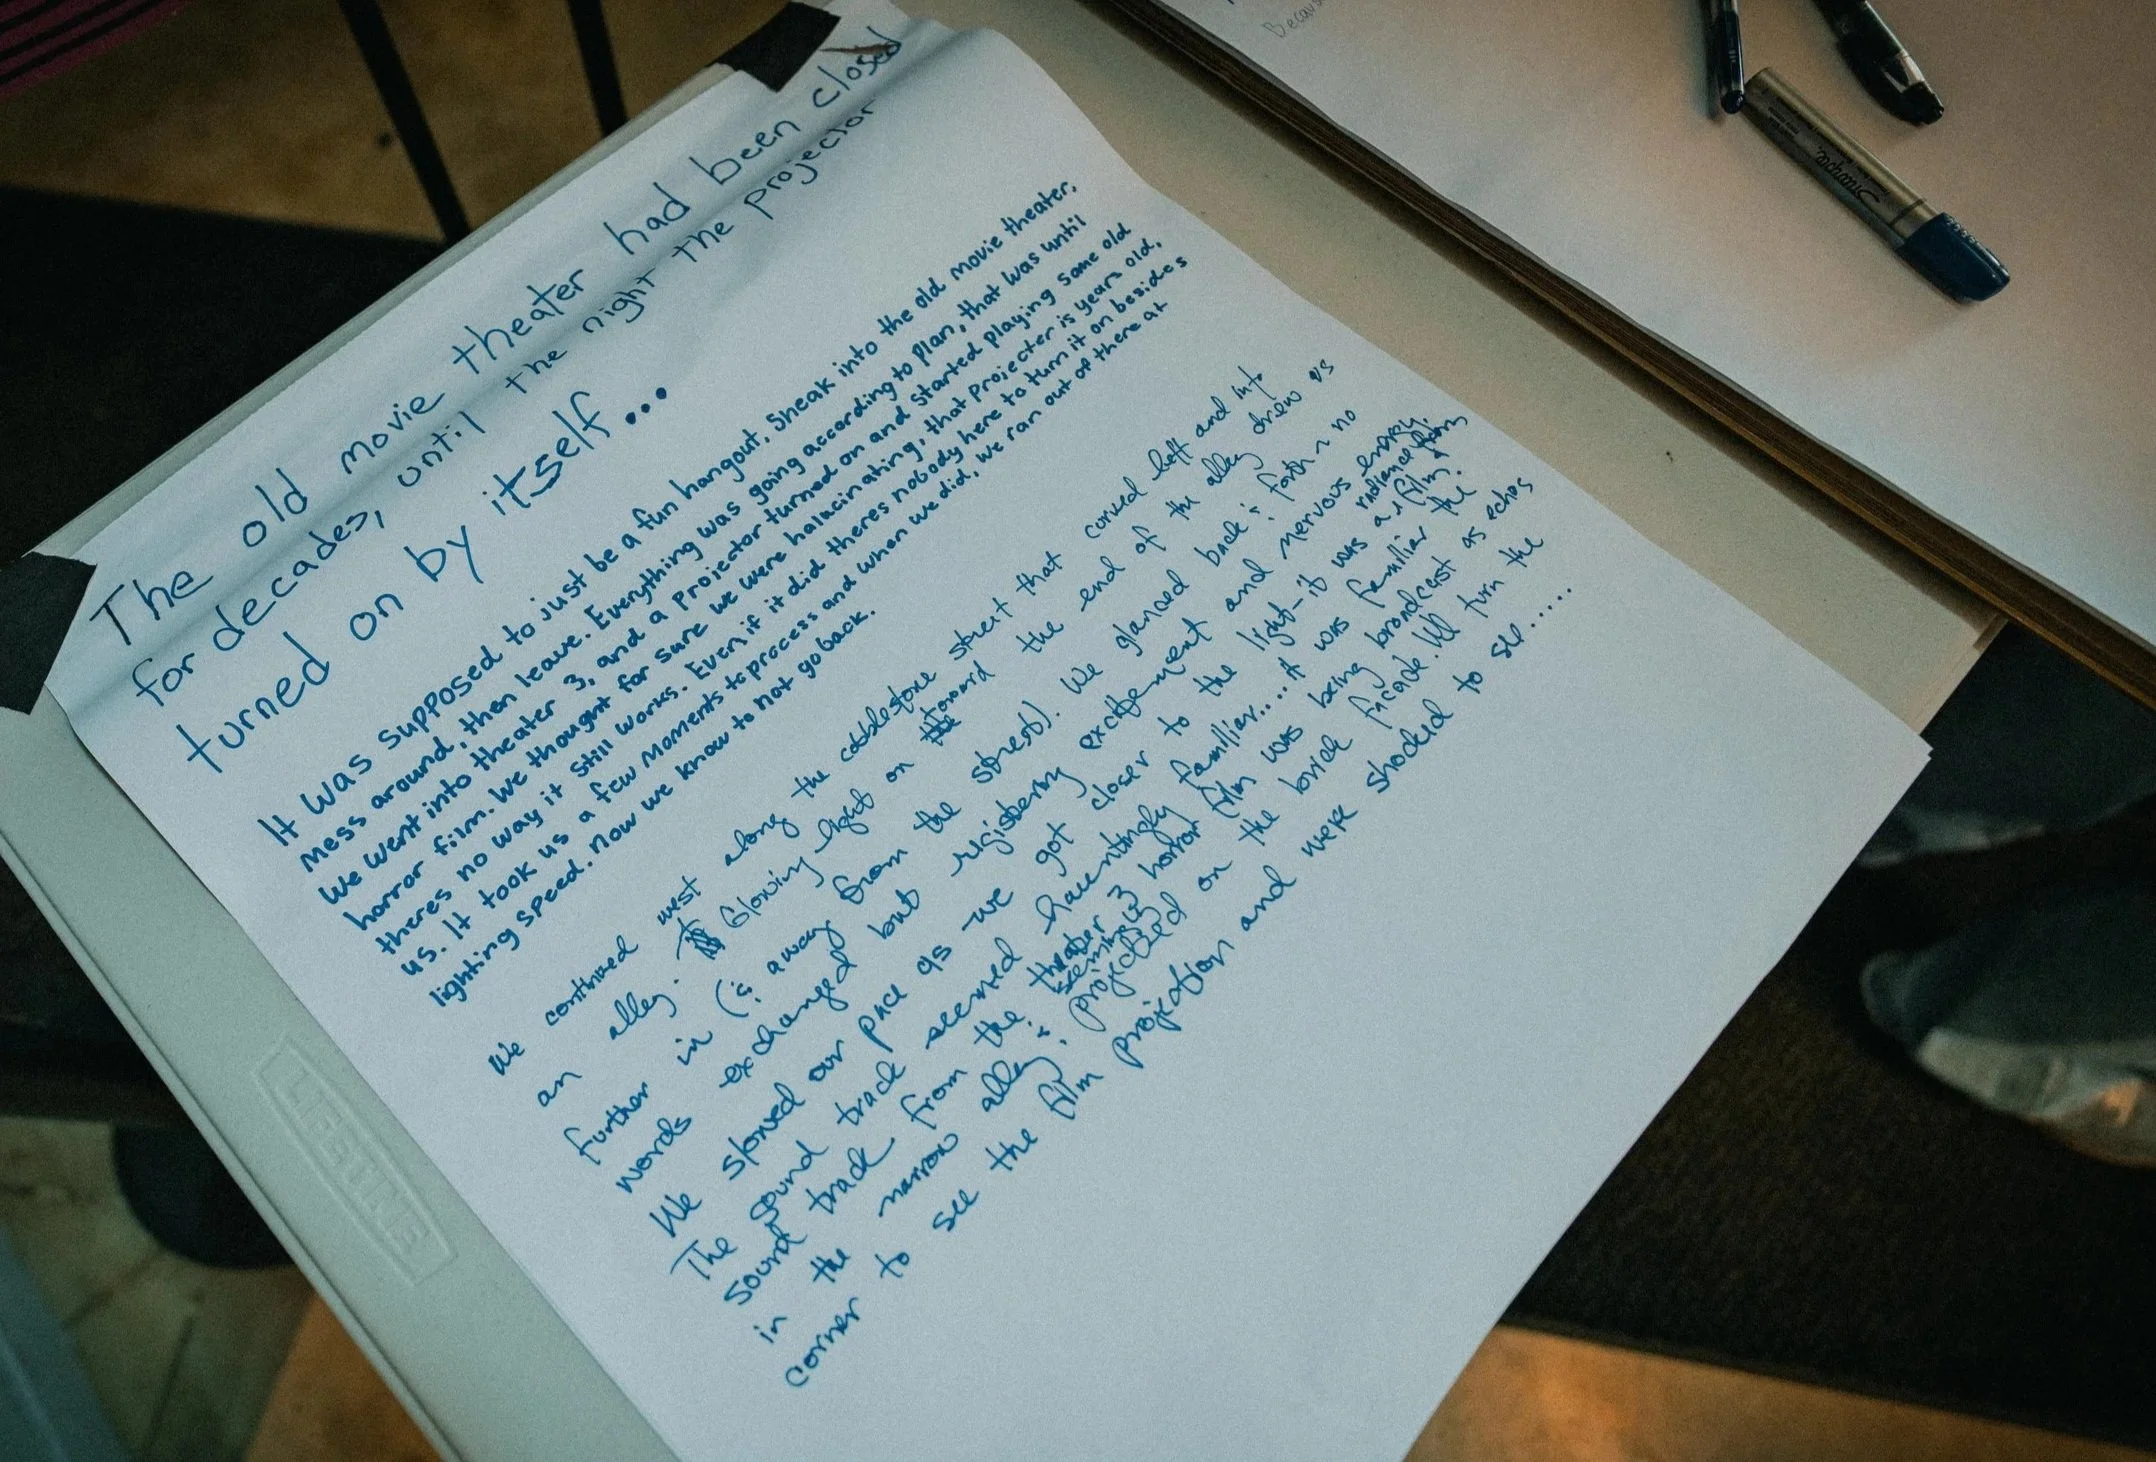 The old movie theater had been closed
for decades, until the night the projector
turned on by itself...
It was supposed to just be a fun hangout. Sneak into the old movie theater,
mess around, then leave. Everything was going according to plan, that was until
We went into theater 3, and a projector turned on and started playing some old
horror film. We thought for sure we were halucinating, that Projecter is years old,
theres no way it still works. Even if it did theres nobody here to turn it on besides
us. It took us a few moments to process and when we did, we ran out of there at
lighting speed. Now we know to not go back.
We continued west along the cobblestone street that curved left and into
an alley. Glowing light on toward the end of the alley drew us
further in (& away from the street). We glanced back & forth no
words exchanged but registering excitement and nervous energy.
We slowed our pace as we got closer to the light - it was radiance from a film &
The sound track seemed hauntingly familiar.... it was familiar. The
sound track from the theater 3 horror film was being broadcast as echos
in the narrow alley & seemingly projected on the brick facade. We turn the
corner to see the film projection and were shocked to see.....
Becaus
Sharpie
LIFETIME